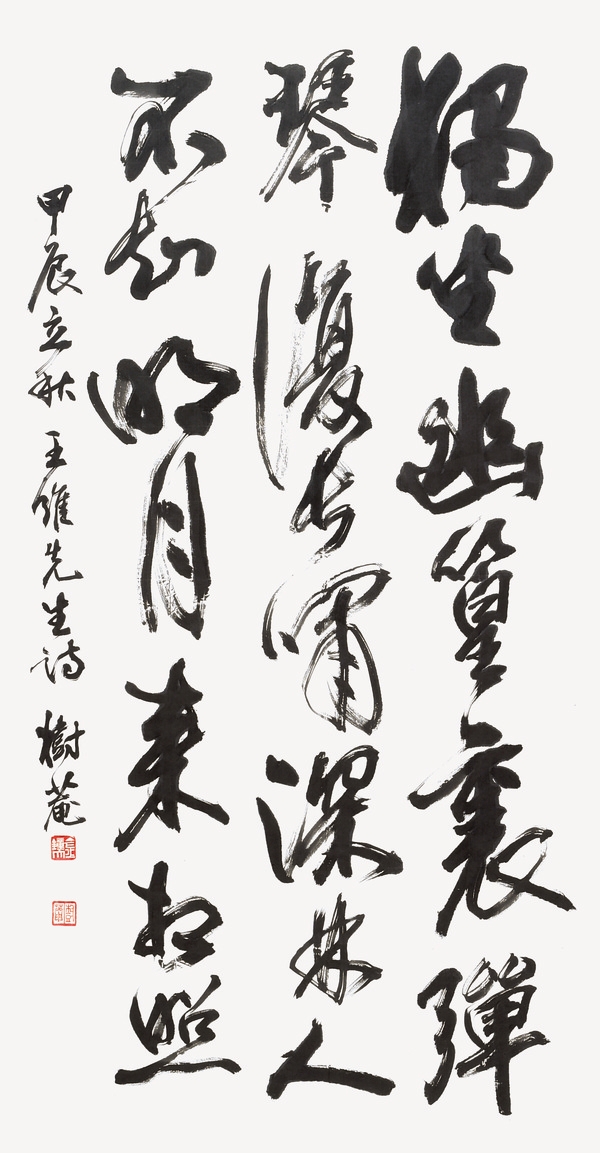 獨坐幽篁裏彈
琴復長嘯深林人
不知明月來相照
甲辰立秋 王維先生詩 樹菴